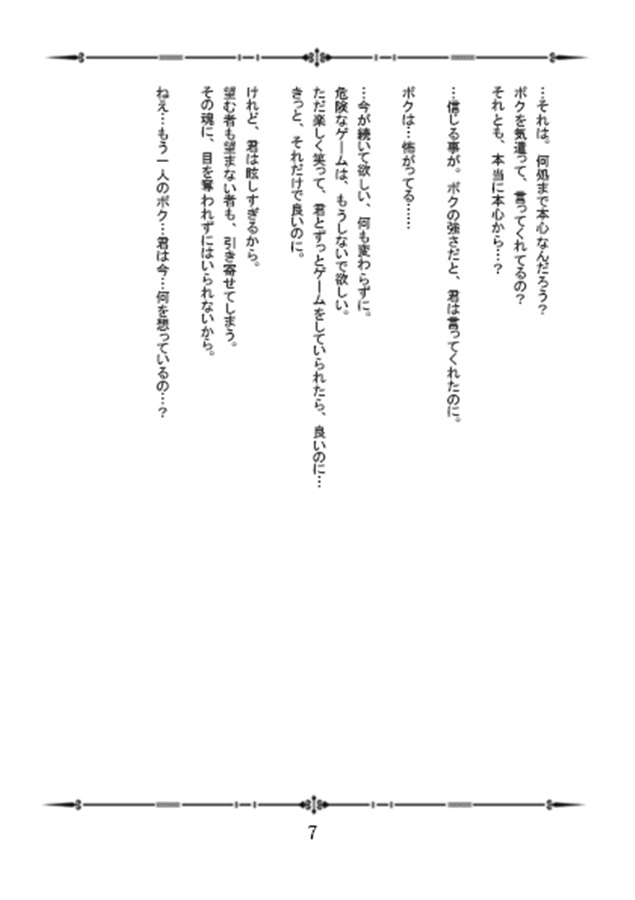 …それは。何処まで本心なんだろう？
ボクを気遣って、言ってくれてるの？
それとも、本当に本心から…？
…信じる事が。ボクの強さだと、君は言ってくれたのに。
ボクは…怖がってる……
…今が続いて欲しい、何も変わらずに。
危険なゲームは、もうしないで欲しい。
ただ楽しく笑って、君とずっとゲームをしていられたら、良いのに…
きっと、それだけで良いのに。
けれど、君は眩しすぎるから。
望む者も望まない者も、引き寄せてしまう。
その魂に、目を奪われずにはいられないから。
ねえ…もう一人のボク…君は今…何を想っているの…？
7